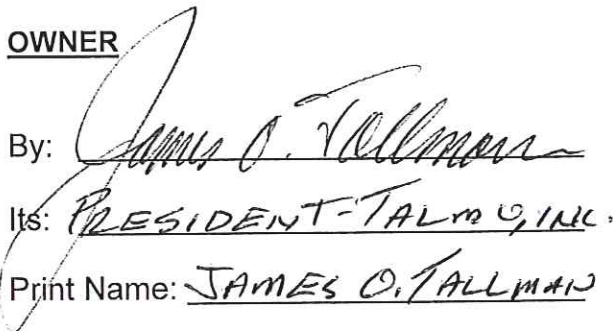 OWNER
By: James O. Tallman
Its: PRESIDENT-TALMO, INC.
Print Name: JAMES O. TALLMAN